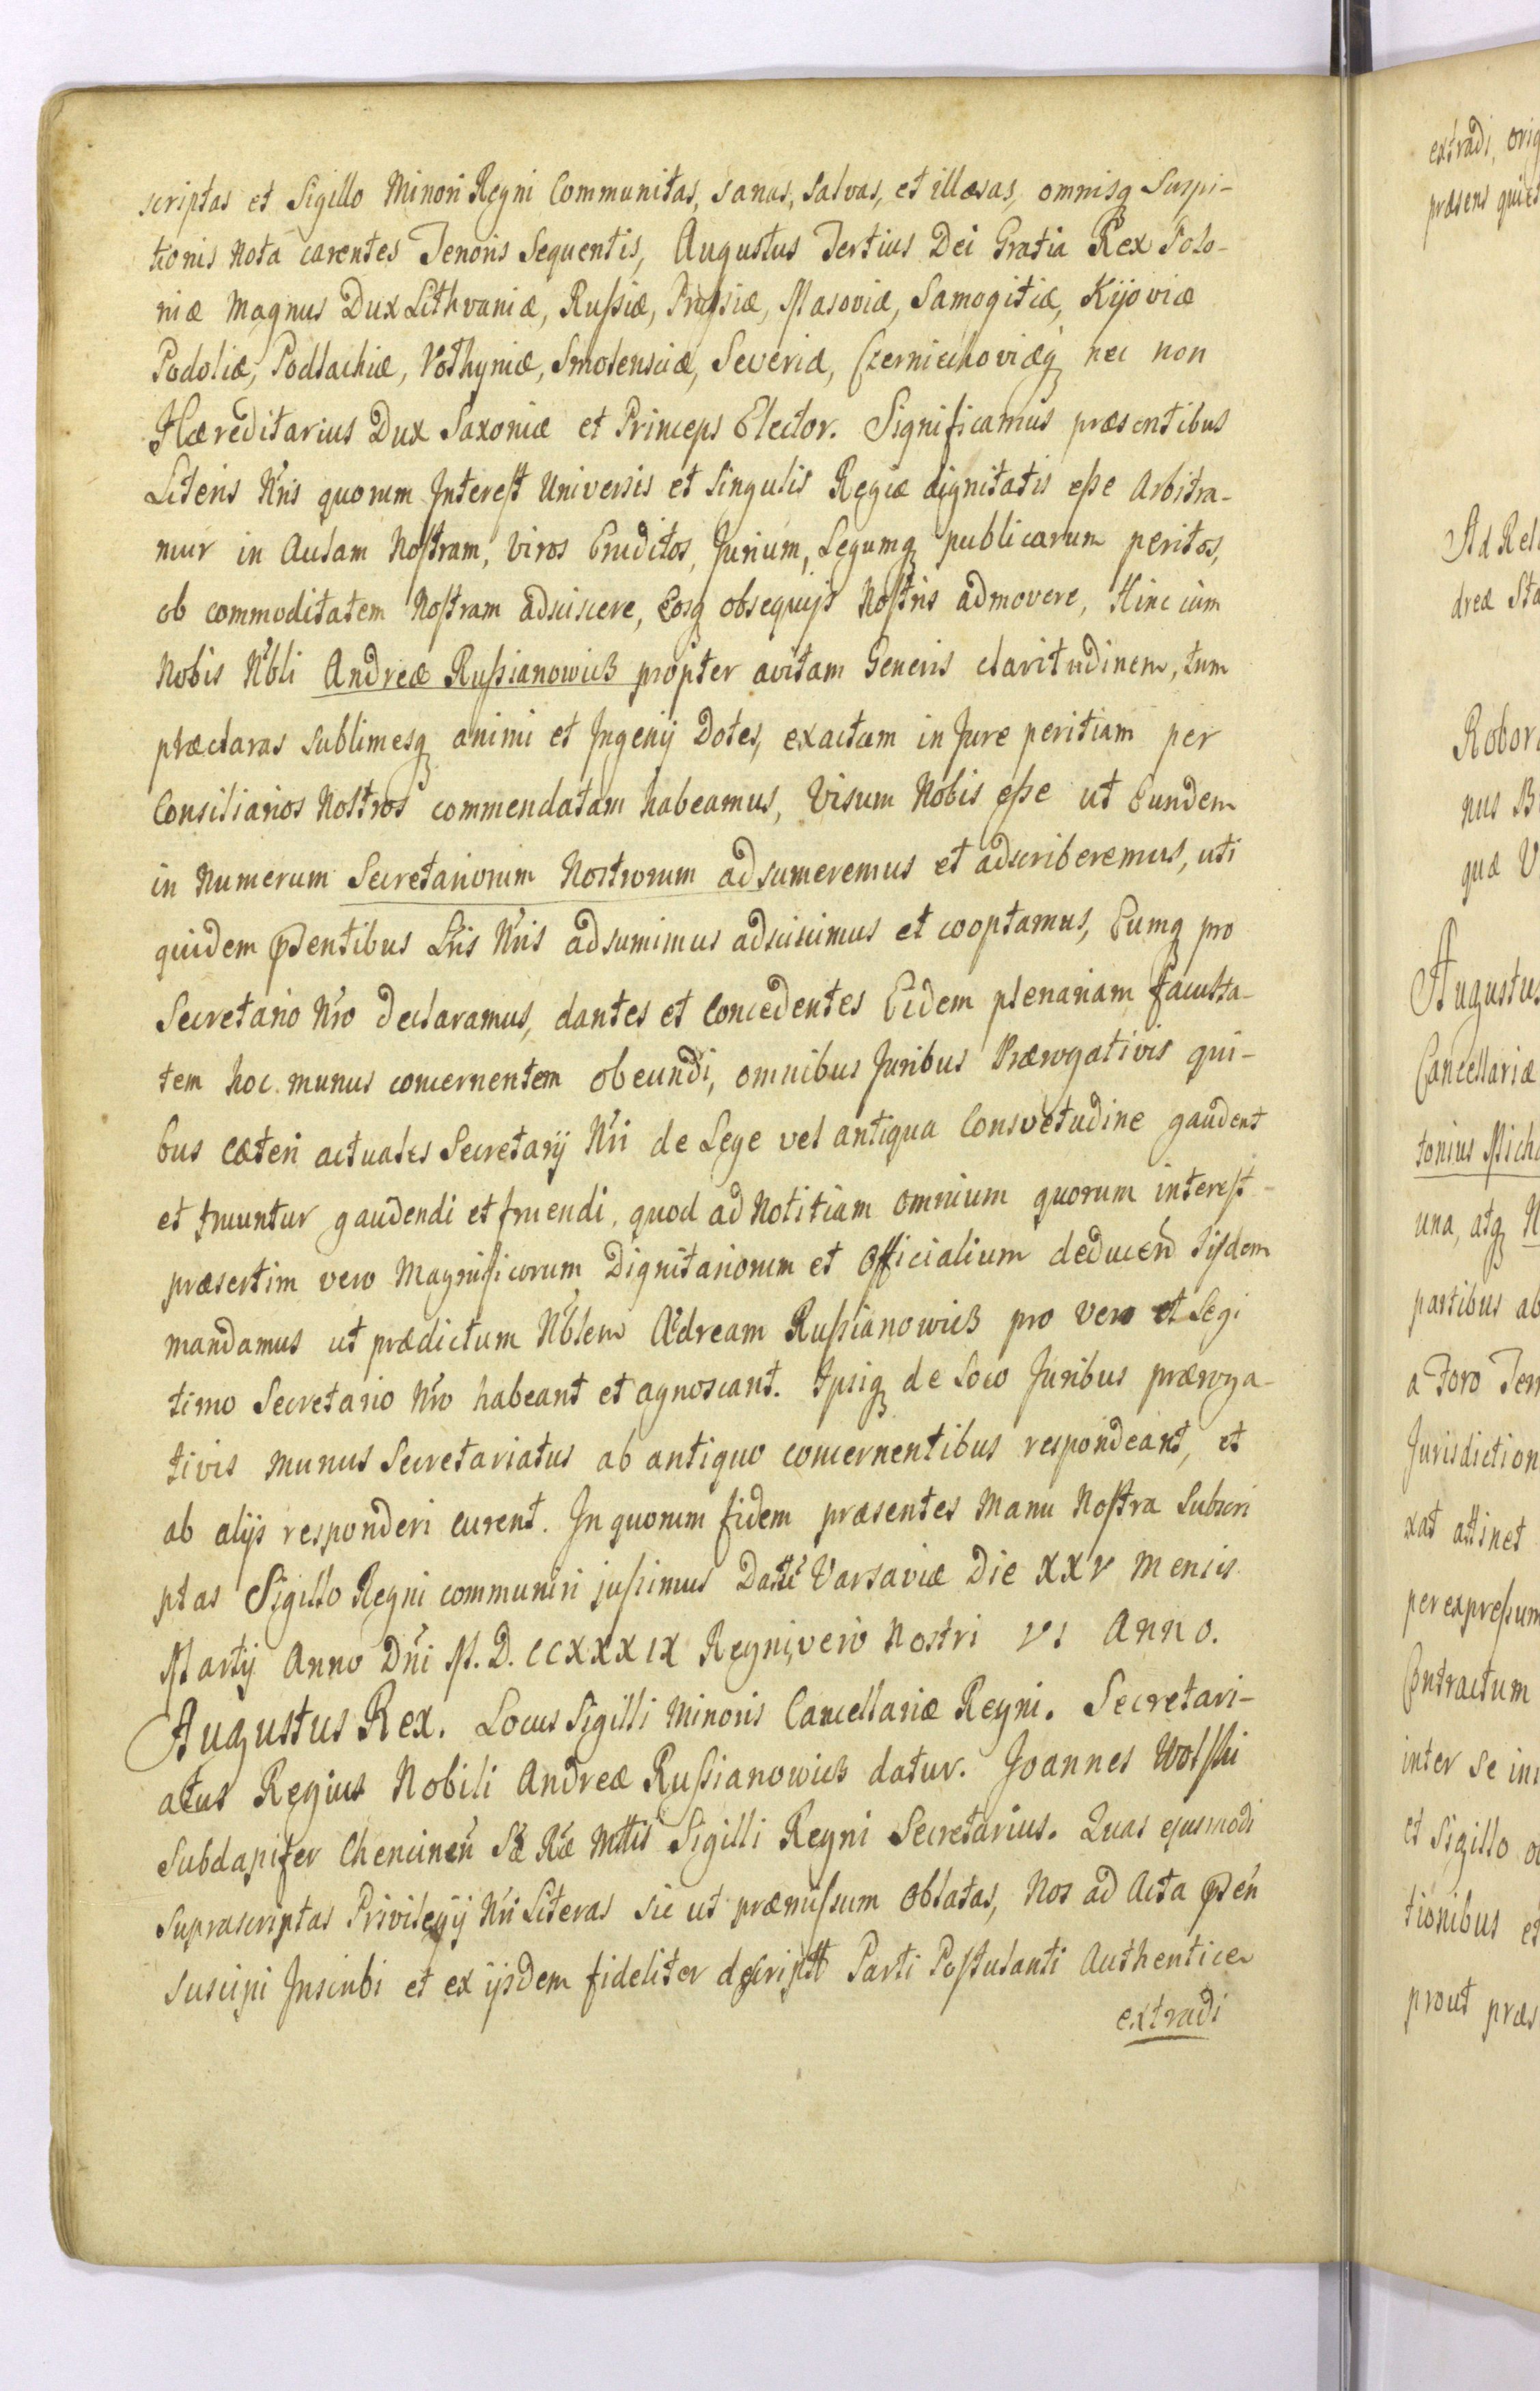 scriptas et Sigillo Minori Regni Communitas, sanas, salvas, et illæsas, omnisq Suspi-
tionis Nota carentes Tenoris Sequentis, Augustus Tertius Dei Gratia Rex Polo-
niæ Magnus Dux Lithvaniæ, Rußiæ, Prußiæ, Masoviæ, Samogitiæ, Kijoviæ
Podoliæ, Podlachiæ, Volhyniæ, Smolensciæ, Severiæ, Czerniechoviæq nec non
Hæreditarius Dux Saxoniæ et Princeps Elector. Significamus præsentibus
Literis Nris quorum Interest Universis et Singulis Regiæ dignitatis eße Arbitra-
mur in Aulam Nostram, viros Eruditos, Jurium, Legumq publicarum peritos,
ob commoditatem Nostram adsciscere, Eosq obsequijs Nostris admovere, Hinc cum
Nobis Nbli Andreæ Rußianowicz propter avitam Generis claritudinem, tum
præclaras sublimesq animi et Ingenij Dotes, exactam in Jure peritiam per
Consiliarios Nostros commendatam habeamus, Visum Nobis eße ut Eundem
in Numerum Secretariorum Nostrorum adsumeremus et adscriberemus, uti
quidem pñtentibus Lris Nris adsumimus adscicimus et cooptamus, Eumq pro
Secretario Nro declaramus, dantes et Concedentes Eidem plenariam faculta-
tem hoc munus concernentem obeundi, omnibus Juribus Prærogativis qui-
bus Cæteri actuales Secretarij Nri de Lege vel antiqua Consvetudine gaudent
et fruuntur gaudendi et fruendi, quod ad Notitiam omnium quorum interest
præsertim vero Magnificorum Dignitariorum et Officialium deducen̄ Iisdem
mandamus ut prædictum Nblem Adream Rußianowicz pro vero et Legi
timo Secretario Nro habeant et agnoscant. Ipsiq de Loco Juribus præroga-
tivis munus Secretariatus ab antiquo concernentibus respondeant, et
ab alijs responderi curent. In quorum fidem præsentes Manu Nostra Subscri
ptas Sigillo Regni communiri jußimus Datt Varsaviæ Die XXV Mensis
Martij Anno Dñi M. D. CCXXXIX Regni, vero Nostri VI Anno.
Augustus Rex. Locus Sigilli Minoris Cancellariæ Regni. Secretari-
atus Regius Nobili Andreæ Rußianowicz datur. Joannes Wolski
Subdapifer Chencinen̄ Sæ Ræ Mttis Sigilli Regni Secretarius. Quas ejusmodi
Suprascriptas Privilegij Nri Literas sic ut præmißum oblatas, Nos ad Acta pñten̄
suscipi Inscribi et ex ijsdem fideliter descriptt Parti Postulanti Authentice
extradi
extradi, orig
præsens quiet
Ad Rel
dreæ Sta
Robor
nus B
quæ V
Augustus
Cancellariæ
tonius Mich
una, atq N
partibus ab
a Foro Terr
Jurisdiction
xat attinet
per expreßum
Contractum
inter se in
et Sigillo
tionibus et
prout præs